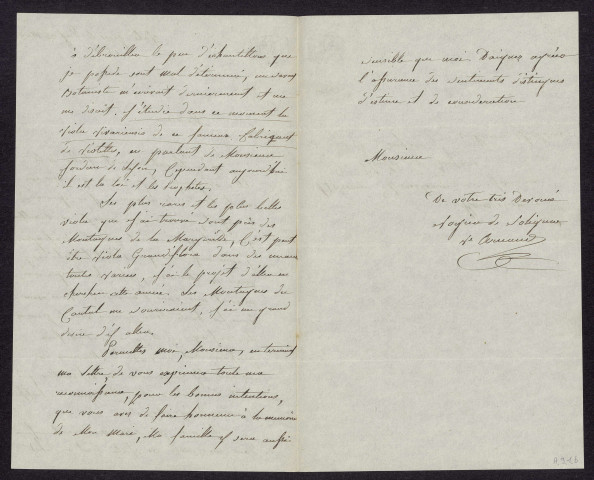 à débrouiller le peu d'échantillons que
je possède sont mal déterminés, un savant
Botaniste m'écrivait dernièrement et me
me disait, j'étudie dans ce moment la
Viola Vivariensis de ce fameux fabriquant
de Violettes, en parlant de Monsieur
Jordan de Lyon, Cependant aujourd'hui
il est la loi et les prophètes.
Les plus rares et les plus belles
viola que j'ai trouvé sont près des
Montagnes de la Margeride, C'est peut
être Viola Grandiflora dans des
toutes variées, j'ai le projet d'aller en
chercher cette année. Les Montagnes du
Cantal me fourniront, j'ai un grand
désir d'y aller.
Permettez moi, Monsieur, en terminant
ma lettre, de vous exprimer toute ma
reconnaissance, pour les bonnes intentions,
que vous avez de faire honneur à la mémoire
de Mon Mari, Ma famille y sera aussi
sensible que moi. Daignez agréer
l'assurance des sentiments distingués
d'estime et de considération
Monsieur
De votre très Dévouée
de
Ve